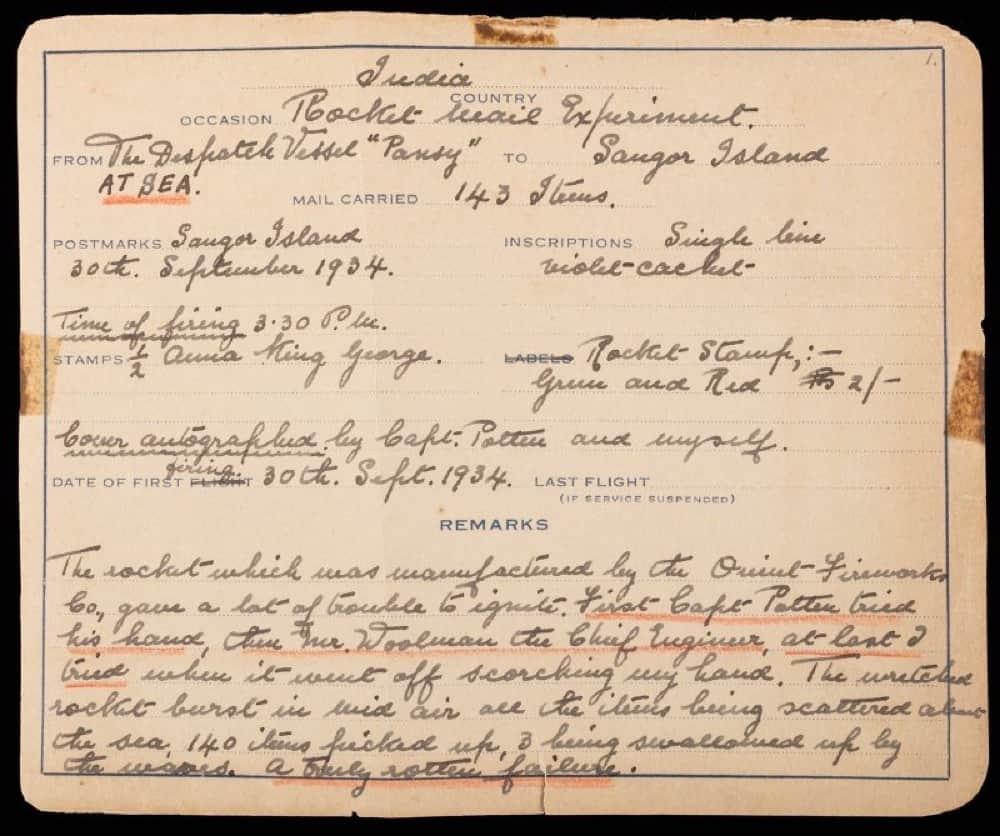 1.
India
COUNTRY
OCCASION Rocket Mail Experiment.
FROM The Despatch Vessel "Pansy" TO Saugor Island
AT SEA.
MAIL CARRIED 143 Items.
POSTMARKS Saugor Island INSCRIPTIONS Single line
30th. September 1934. violet cachet
Time of firing 3.30 P.M.
STAMPS ½ Anna King George. LABELS Rocket Stamp,:—
Green and Red Rs 2/-
Cover autographed by Capt. Potten and myself.
firing
DATE OF FIRST FLIGHT 30th. Sept. 1934. LAST FLIGHT
(IF SERVICE SUSPENDED)
REMARKS
The rocket which was manufactured by the Orient Fireworks
Co., gave a lot of trouble to ignite. First Capt Potten tried
his hand, then Mr. Woolman the Chief Enginer, at last I
tried when it went off scorching my hand. The wretched
rocket burst in mid air all the items being scattered about
the sea, 140 items picked up, 3 being swallowed up by
the waves. A truly rotten failure.